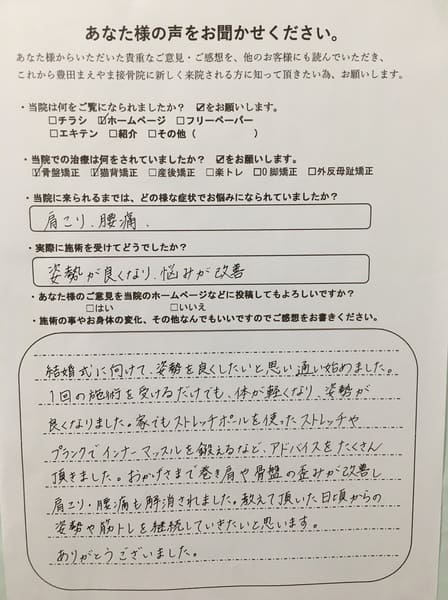 あなた様の声をお聞かせください。
あなた様からいただいた貴重なご意見・ご感想を、他のお客様にも読んでいただき、
これから豊田まえやま接骨院に新しく来院される方に知って頂きたい為、お願いします。
・当院は何をご覧になられましたか? ☑をお願いします。
□チラシ ☑ホームページ □フリーペーパー
□エキテン □紹介 □その他( )
・当院での治療は何をされていましたか? ☑をお願いします。
☑骨盤矯正 ☑猫背矯正 □産後矯正 □楽トレ □O脚矯正 □外反母趾矯正
・当院に来られるまでは、どの様な症状でお悩みになられていましたか?
肩こり、腰痛、
・実際に施術を受けてどうでしたか?
姿勢が良くなり、悩みが改善
・あなた様のご意見を当院のホームページなどに投稿してもよろしいですか?
□はい □いいえ
・施術の事やお身体の変化、その他なんでもいいですのでご感想をお書きください。
結婚式に向けて、姿勢を良くしたいと思い通い始めました。
1回の施術を受けるだけでも、体が軽くなり、姿勢が
良くなりました。家でもストレッチポールを使ったストレッチや
プランクでインナーマッスルを鍛えるなど、アドバイスをたくさん
頂きました。おかげさまで巻き肩や骨盤の歪みが改善し
肩こり・腰痛も解消されました。教えて頂いた日頃からの
姿勢や筋トレを継続していきたいと思います。
ありがとうございました。